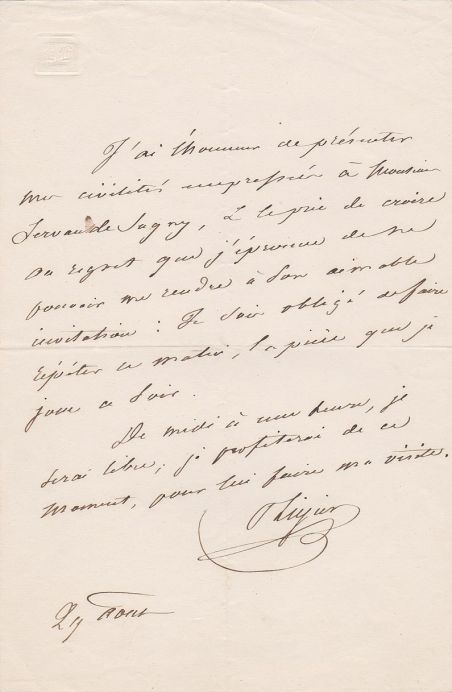 J'ai l'honneur de présenter
mes civilités empressées à Monsieur
Servan de Sugny, & le prie de croire
au regret que j'éprouve de ne
pouvoir me rendre à son aimable
invitation : Je suis obligé de faire
répéter ce matin, la pièce que je
joue ce soir.
De midi à une heure, je
serai libre, je profiterai de ce
moment, pour lui faire ma visite.
Ligier
29 Aout